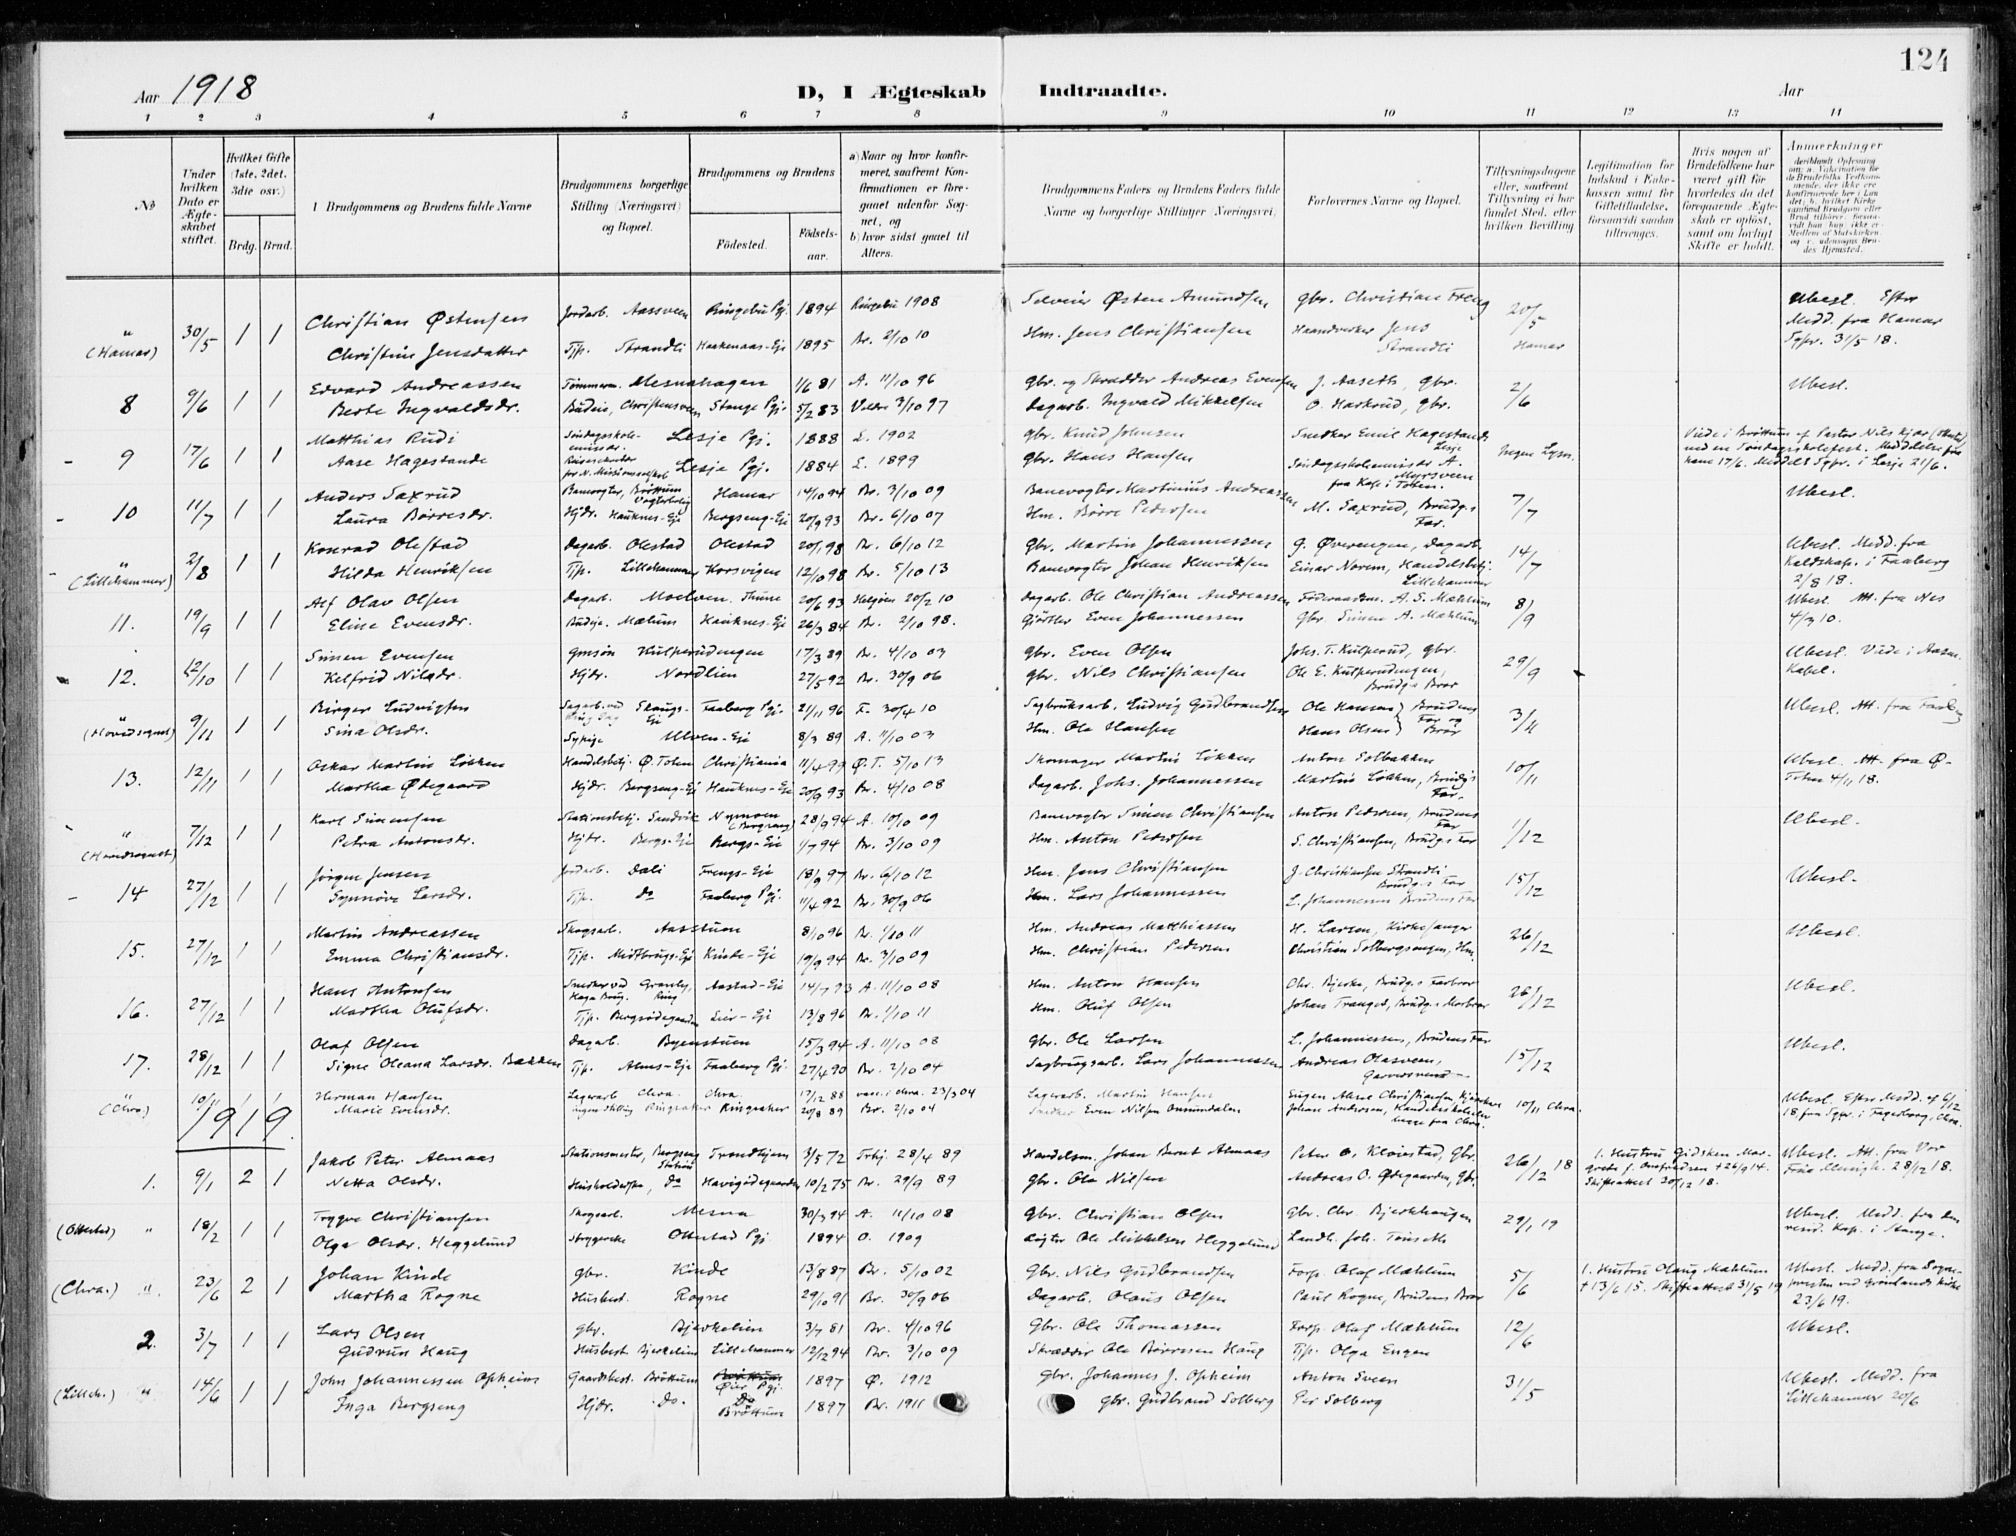 124
Aar 1918
D, I Ægteskab Indtraadte.
Aar
1 2 3 4 5 6 7 8 9 10 11 12 13 14
No
Under hvilken Dato er Ægteskabet stiftet.
Hvilket Gifte (1ste, 2det, 3die osv.)
Brdg. Brud.
Brudgommens og Brudens fulde Navne
Brudgommens borgerlige Stilling (Næringsvei) og Bopæl.
Brudgommens og Brudens
Fødested.
Fødselsaar.
a) Naar og hvor konfirmeret, saafremt Konfirmationen er foregaaet udenfor Sognet, og
b) hvor sidst gaaet til Alters.
Brudgommens Faders og Brudens Faders fulde Navne og borgerlige Stillinger (Næringsvei)
Forlovernes Navne og Bopæl.
Tillysningsdagene eller, saafremt Tillysning ei har fundet Sted, efter hvilken Bevilling
Legitimation for Indskud i Enkekassen samt for Giftetilladelse, forsaavidt saadan tiltrænges.
Hvis nogen af Brudefolkene har været gift før hvorledes da det foregaaende Ægteskab er opløst, samt om lovligt Skifte er holdt.
Anmerkninger
" (Hamar) 30/5 1 1 Christian Østensen Jordarb. Aassveen Ringebu Pgj. 1894 Ringebu 1908 Selveier Østen Amundsen Gbr. Christian Freng 20/5 Hamar Ubesl. Efter Medd. fra Hamar Sgpr. 31/5 18.
Christine Jensdatter Tjp. Strandli Haakenaas-Eje 1895 Br. 2/10 10 Hm. Jens Christiansen Haandverker Jens Strandli
8 9/6 1 1 Edvard Andreassen Tømmerm. Mesnahagen 1/6 81 A. 11/10 96 Gbr. og Skrædder Andreas Evensen J. Aaseth, gbr. 2/6 Ubesl.
Berte Ingvaldsdr. Budeie, Christensveen Stange Pgj. 5/2 83 Veldre 3/10 97 Dagarb. Ingvald Mikkelsen O. Harkrud, gbr.
9 17/6 1 1 Matthias Rudi Søndagsskole- emissær. Lesje Pgj. 1888 L. 1902 Gbr. Knud Johnsen Snedker Emil Hagestande Lesje Ingen Lysn. Viede i Brøttum af Pastor Nils Kjær
Aase Hagestande Lesje Pgj. 1884 L. 1899 Gbr. Hans Hansen Søndagsskoleemissær A. Myrsveen ham 17/6. Meddelt Sgpr. i Lesje 21/6.
10 11/7 1 1 Anders Saxrud Banevogter, Brøttum Vogterbolig Hamar 14/10 94 Br. 3/10 09 Banevogter Martinius Andreassen M. Saxrud, Brudg.s Far. 7/7 Ubesl.
Laura Børresdr. Hjdr. Hauknes-Eje Bergseng-Eje 20/9 93 Br. 6/10 07 Hm. Børre Pedersen
" (Lillehammer) 2/8 1 1 Konrad Olestad Dagarb. Olestad Olestad 20/1 98 Br. 6/10 12 Gbr. Martin Johannessen G. Øverengen, Dagarb. 14/7 Ubesl. Medd. fra Kaldskap. i Faaberg 2/8 18.
Hilda Henriksen Tjp. Lillehammer Korsvigen 12/10 98 Br. 5/10 13 Banevogter Johan Henriksen Einar Norem, Handelsbetj. Lillehammer
11. 19/9 1 1 Alf Olav Olsen Dagarb. Moelven Thune 20/6 93 Helgøien 20/2 10 Dagarb. Ole Christian Andreassen A. S. Mæhlum 8/9 Ubesl. Att. fra Nes 4/9 10.
Eline Evensdr. Budeje. Mælum Hauknes-Eje 26/3 84 Br. 2/10 98. Gjørtler Even Johannessen Gbr. Simen A. Mæhlum
12. 12/10 1 1 Simen Evensen Gmsøn Kulperudengen 17/3 89 Br. 4/10 03 Gbr. Even Olsen Johs. T. Kulperud, gbr. 29/9 Ubesl. Viede i Aasm. Kapel.
Kelfrid Nilsdr. Hjdr. Nordlien 27/5 92 Br. 30/9 06 Gbr. Nils Christiansen Ole E. Kulperudengen, Brudg.s Bror
(Hovedsognet) 9/11 1 1 Birger Ludvigsen Sagarb. ved Ring Sag Skaugs-Eje Faaberg Pgj. 21/11 96 F. 30/4 10 Sagbruksarb. Ludvig Gudbrandsen Ole Hansen Brudens Far og 3/11 Ubesl. Att. fra Faaberg
Sina Olsdr. Sypige Ulven-Eje 8/3 89 A. 11/10 03 Hm. Ole Hansen Hans Olsen Bror
13. 12/11 1 1 Oskar Martin Løkken Handelsbetj. Ø. Toten Christiania 11/4 99 Ø. T. 5/10 13 Skomager Martin Løkken Anton Solbakken 10/11 Ubesl. Att. fra Ø. Toten 4/11 18.
Martha Ødegaard Hjdr. Bergseng-Eje Hauknes-Eje 20/9 93 Br. 4/10 08 Dagarb. Johs. Johannessen Martin Løkken, Brudg.s Far.
" (Hovedsognet) 7/12 1 1 Karl Simensen Stationsbetj. Sandvik Nymoen (Bergseng) 28/9 94 A. 10/10 09 Banevogter Simen Christiansen Anton Pedersen, Brudens Far 1/12 Ubesl.
Petra Antonsdr. Hjdr. Bergs-Eje Bergs-Eje 1/7 94 Br. 3/10 09 Hm. Anton Pedersen S. Christiansen, Brudg.s Far
14 27/12 1 1 Jørgen Jensen Jordarb. Dali Frengs-Eje 18/9 97 Br. 6/10 12 Hm. Jens Christiansen J. Christiansen Strandli Brudg.s Far 15/12 Ubesl.
Synnøve Larsdr. Tjp. Do Faaberg Pgj. 11/4 92 Br. 30/9 06 Hm. Lars Johannessen L. Johannessen Brudens Far
15. 27/12 1 1 Martin Andreassen Skogsarb. Aasstuen 8/10 96 Br. 1/10 11 Hm. Andreas Matthiassen H. Larsen, Kirkesanger 26/12 Ubesl.
Emma Christiansdr. Tjp. Midtbrugs-Eje Kinde-Eje 19/9 94 Br. 3/10 09 Hm. Christian Pedersen Christian Solbergsengen, Hm.
16. 27/12 1 1 Hans Antonsen Snedker ved Haga Brug, Granly, Ring Aastad-Eje 14/7 93 A. 11/10 08 Hm. Anton Hansen Chr. Bjerke, Brudg.s Farbror 26/12 Ubesl.
Martha Olufsdr. Tjp. Bergsødegaarden Lier-Eje 13/8 96 Br. 1/10 11 Hm. Oluf Olsen Johan Tranged, Brudg.s Morbror
17. 28/12 1 1 Olaf Olsen Dagarb. Byenstuen 15/3 94 A. 11/10 08 Gbr. Ole Larsen L. Johannessen, Brudens Far 15/12 Ubesl.
Signe Oleana Larsdr. Bakken Tjp. Alms-Eje Faaberg Pgj. 27/4 90 Br. 2/10 04 Sagbrugsarb. Lars Johannessen Andreas Olasveen, Garversvend
" (Chra.) 10/11 1 1 Herman Hansen Lagerarb. Chra. Chra. 17/12 88 Vaar. i Chra. 23/3 04 Lagerarb. Martin Hansen Eugen Aksel Christiansen, 10/11 Chra. Ubesl. Efter Medd. af 6/12 18 fra Sgpr. i Fagerborg, Chra.
Marie Evensdr. ingen Stilling Ringsaker Ringsaker 20/8 89 Br. 2/10 04 Snedker Even Nilsen Johan Andersen,
1919.
1. 9/1 2 1 Jakob Peter Almaas Stationsmester, Bergseng Station Trondhjem 3/5 72 Trhj. 28/4 89 Handelsm. Johan Bernt Almaas Peter O. Kløvstad, Gbr. 26/12 18 1. Hustru Gidsken Margrete f. † 26/9 14. Skifteattest 30/12 18. Ubesl. Att. fra Vor Frue Menigh. 28/12 18.
Netta Olsdr. Husholderske, Do Havigødegaarden 10/2 75 Br. 29/9 89 Gbr. Ole Nilsen Andreas O. Ødegaarden, Gbr.
(Ottestad) " 18/2 1 1 Trygve Christiansen Skogsarb. Mesna 30/3 94 A. 11/10 08 Gbr. Christian Olsen Gbr. Chr. Bjerkhaugen 29/1 19 Ubesl. Medd. fra den resid. Kap. i Stange.
Olga Olsdr. Heggelund Strygerske Ottestad Pgj 1894 O. 1909 Ole Mikkelsen Heggelund Landh. Joh. Tønseth
(Chra.) " 23/6 2 1 Johan Kinde Gbr. Kinde 13/8 87 Br. 5/10 02 Gbr. Nils Gudbrandsen Forp. Olaf Mæhlum 5/6 1. Hustru Olaug Mæhlum † 13/6 15. Skifteattest 31/5 19 Ubesl. Medd. fra Sognepresten ved Grønlands Kirke 23/6 19.
Martha Rogne Husbest. Rogne 29/10 91 Br. 30/9 06 Dagarb. Olaus Olsen Paul Rogne, Brudens Bror
2. 3/7 1 1 Lars Olsen Gbr. Bjerkelien 3/7 81 Br. 4/10 96 Gbr. Ole Thomassen Forp. Olaf Mæhlum 12/6 Ubesl.
Gudrun Haug Husbest Bjerkelien Lillehammer 12/12 94 Br. 3/10 09 Skrædder Ole Børresen Haug Tjp. Olga Engen
(Lilleh.) " 14/6 1 1 John Johannessen Opheim Gaardsbest. Brøttum Øier Pgj. 1897 Ø. 1912 Gbr. Johannes J. Opheim Anton Sveen 31/5 Ubesl. Medd. fra Lillehammer 20/6
Inga Bergseng Hjdr. do. Do Brøttum 1897 Br. 1911 Gbr. Gudbrand Solberg Per Solberg